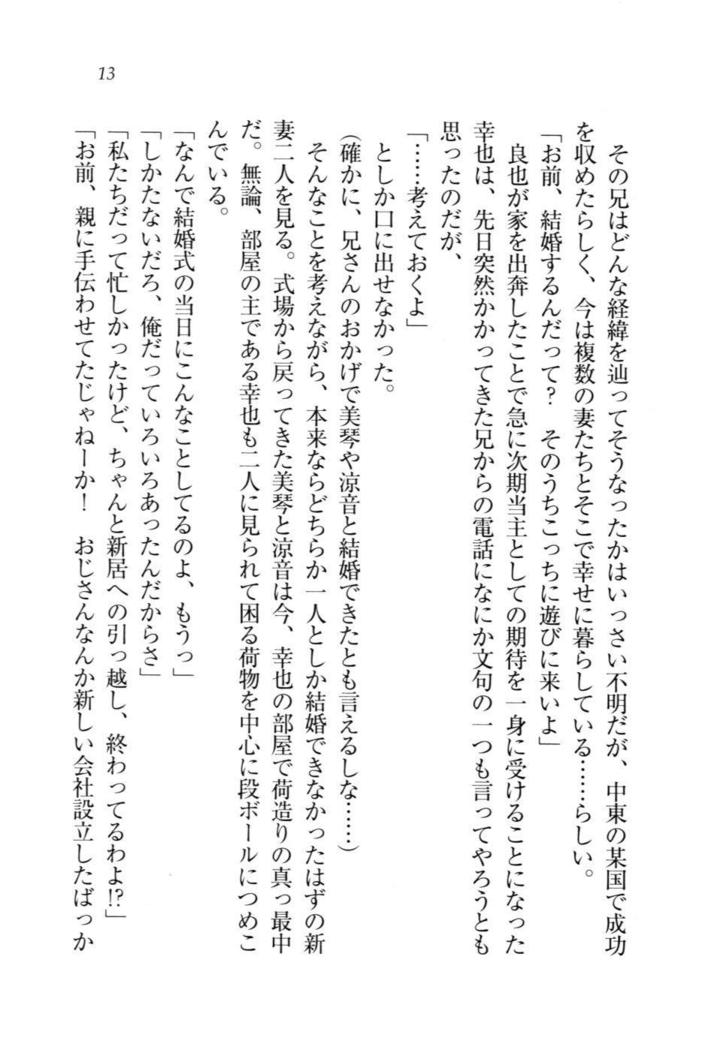 13
その兄はどんな経緯を辿ってそうなったかはいっさい不明だが、中東の某国で成功
を収めたらしく、今は複数の妻たちとそこで幸せに暮らしている……らしい。
「お前、結婚するんだって？　そのうちこっちに遊びに来いよ」
良也が家を出奔したことで急に次期当主としての期待を一身に受けることになった
幸也は、先日突然かかってきた兄からの電話になにか文句の一つも言ってやろうとも
思ったのだが、
「……考えておくよ」
としか口に出せなかった。
（確かに、兄さんのおかげで美琴や涼音と結婚できたとも言えるしな……）
そんなことを考えながら、本来ならどちらか一人としか結婚できなかったはずの新
妻二人を見る。式場から戻ってきた美琴と涼音は今、幸也の部屋で荷造りの真っ最中
だ。無論、部屋の主である幸也も二人に見られて困る荷物を中心に段ボールにつめこ
んでいる。
「なんで結婚式の当日にこんなことしてるのよ、もうっ」
「しかたないだろ、俺だっていろいろあったんだからさ」
「私たちだって忙しかったけど、ちゃんと新居への引っ越し、終わってるわよ!?」
「お前、親に手伝わせてたじゃねーか！　おじさんなんか新しい会社設立したばっか